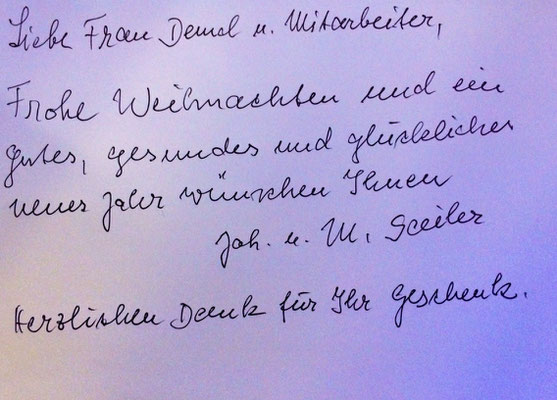 Liebe Frau Demel u. Mitarbeiter,
Frohe Weihnachten und ein
gutes, gesundes und glückliches
neues Jahr wünschen Ihnen
Joh. u. M.
Herzlichen Dank für Ihr Geschenk.